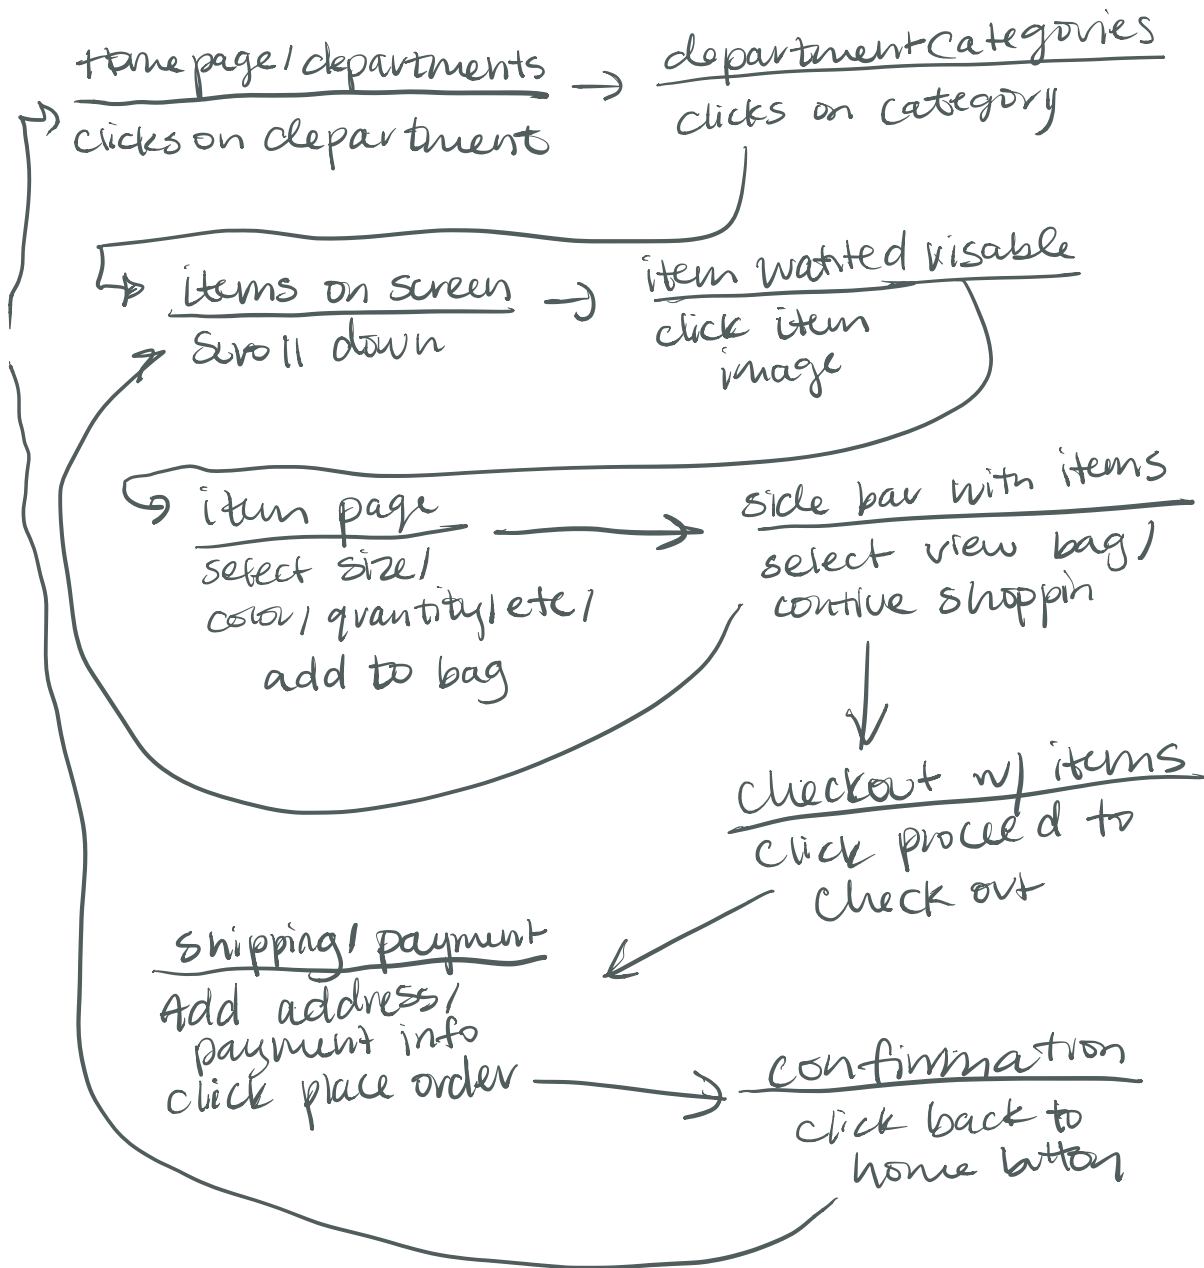 Home page/departments
clicks on department
department categories
clicks on category
items on screen
scroll down
item wanted visable
click item
image
item page
select size/
color/quantity/etc/
add to bag
side bar with items
select view bag/
contiue shoppin
checkout w/ items
click proceed to
check out
shipping/payment
Add address/
payment info
click place order
confirmation
click back to
home button